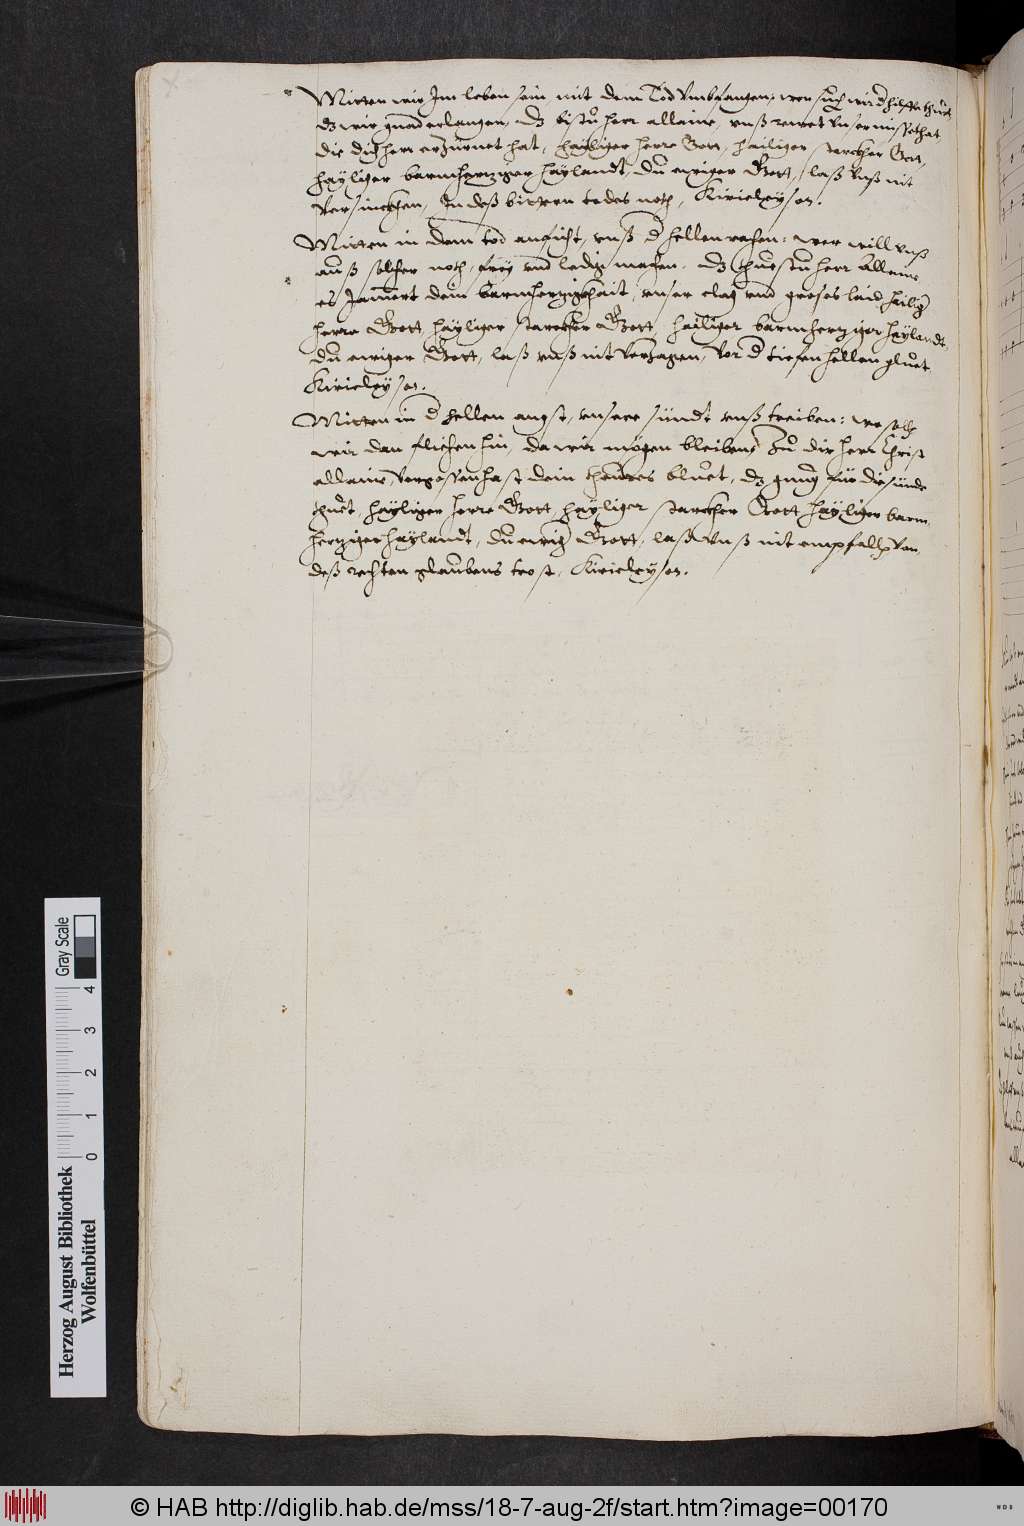 Mitten wir Im leben sein, mit dem Tod vmbfangen, wen such wir d hilffe thuet
dz wir gnad erlangen, dz bistu herr allaine, vnß rewet vnser missethat,
die dich herr erzürnet hat, hayliger herre Gott, hailiger starckher Gott,
hayliger barmhertziger haylandt, du ewiger Gott, laß vnß nit
versinckhen, In deß bittern todes noth, Kirieleyson.
Mitten in dem tod anficht, vnß d hellen rachen: wer will vnß
auß solcher noth, frey vnd ledig machen, dz thuestu herr Allaine
es Jamert dein barmhertzigkhait, vnser clag vnd groses laid, heilig
herre Gott, hayliger starckher Gott, hailiger barmhertziger haylandt,
du ewiger Gott, laß vnß nit verzagen, vor d tiefen hellen gluet
Kirieleyson.
Mitten in d hellen angst, vnsere sündt vnß treiben: wo solln
wir dan fliehen hin, da wir mögen bleiben, Zu dir herr Christ
allaine, vergossen hast dein theures bluet, dz gnug für die sünde
thuet, hayliger herre Gott, hayliger starckher Gott, hayliger barm
hertziger haylandt, du ewig Gott, laß vnß nit empfallen von
deß rechten glaubens trost, Kirieleyson.
Gray Scale
0 1 2 3 4
Herzog August Bibliothek
Wolfenbüttel
© HAB http://diglib.hab.de/mss/18-7-aug-2f/start.htm?image=00170